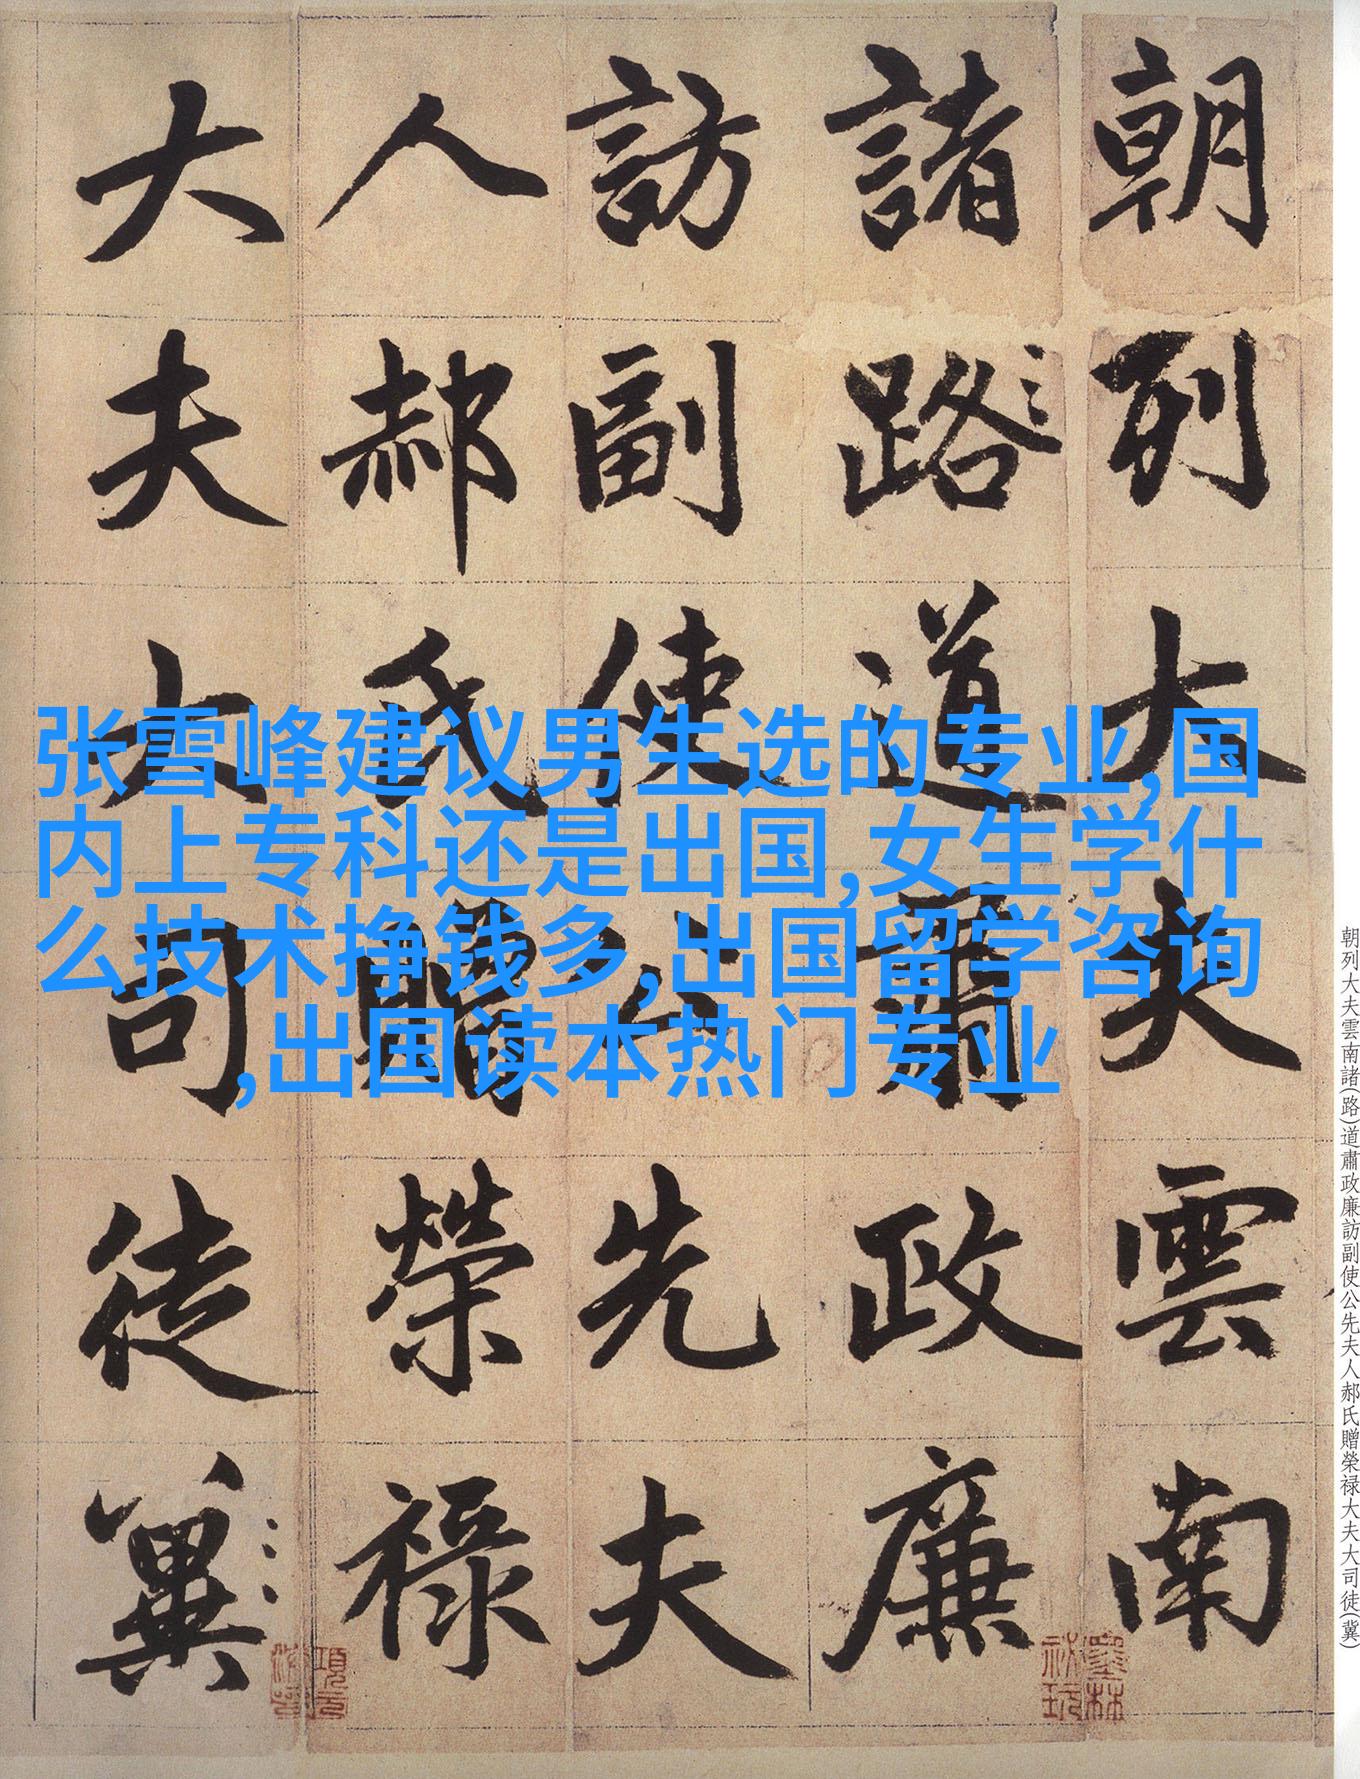 朝列大夫雲南
諸路道肅政廉
訪副使公先夫
人郝氏贈榮祿
大夫大司徒冀
张雪峰建议男生选的专业,国
内上专科还是出国,女生学什
么技术挣钱多,出国留学咨询
,出国读本热门专业
朝列大夫雲南諸(路)道肅政廉訪副使公先夫人郝氏贈榮禄大夫大司徒(冀)